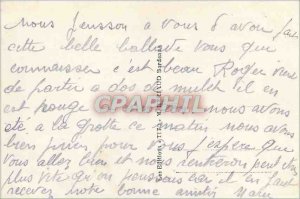 nous pensson a vous d'avoir fait
cette belle ballade vous que
connaisser c'est beau Roger vient
de partir a dos de mulet il en
est rouge nous avons
été a la grotte ce matin nous avons
bien prier pour vous j'espere que
vous allez bien et nous rentreron peut etre
plus vite qu'on pensais car il en fait
recevez notre bonne amitié
CPAPHIL.com